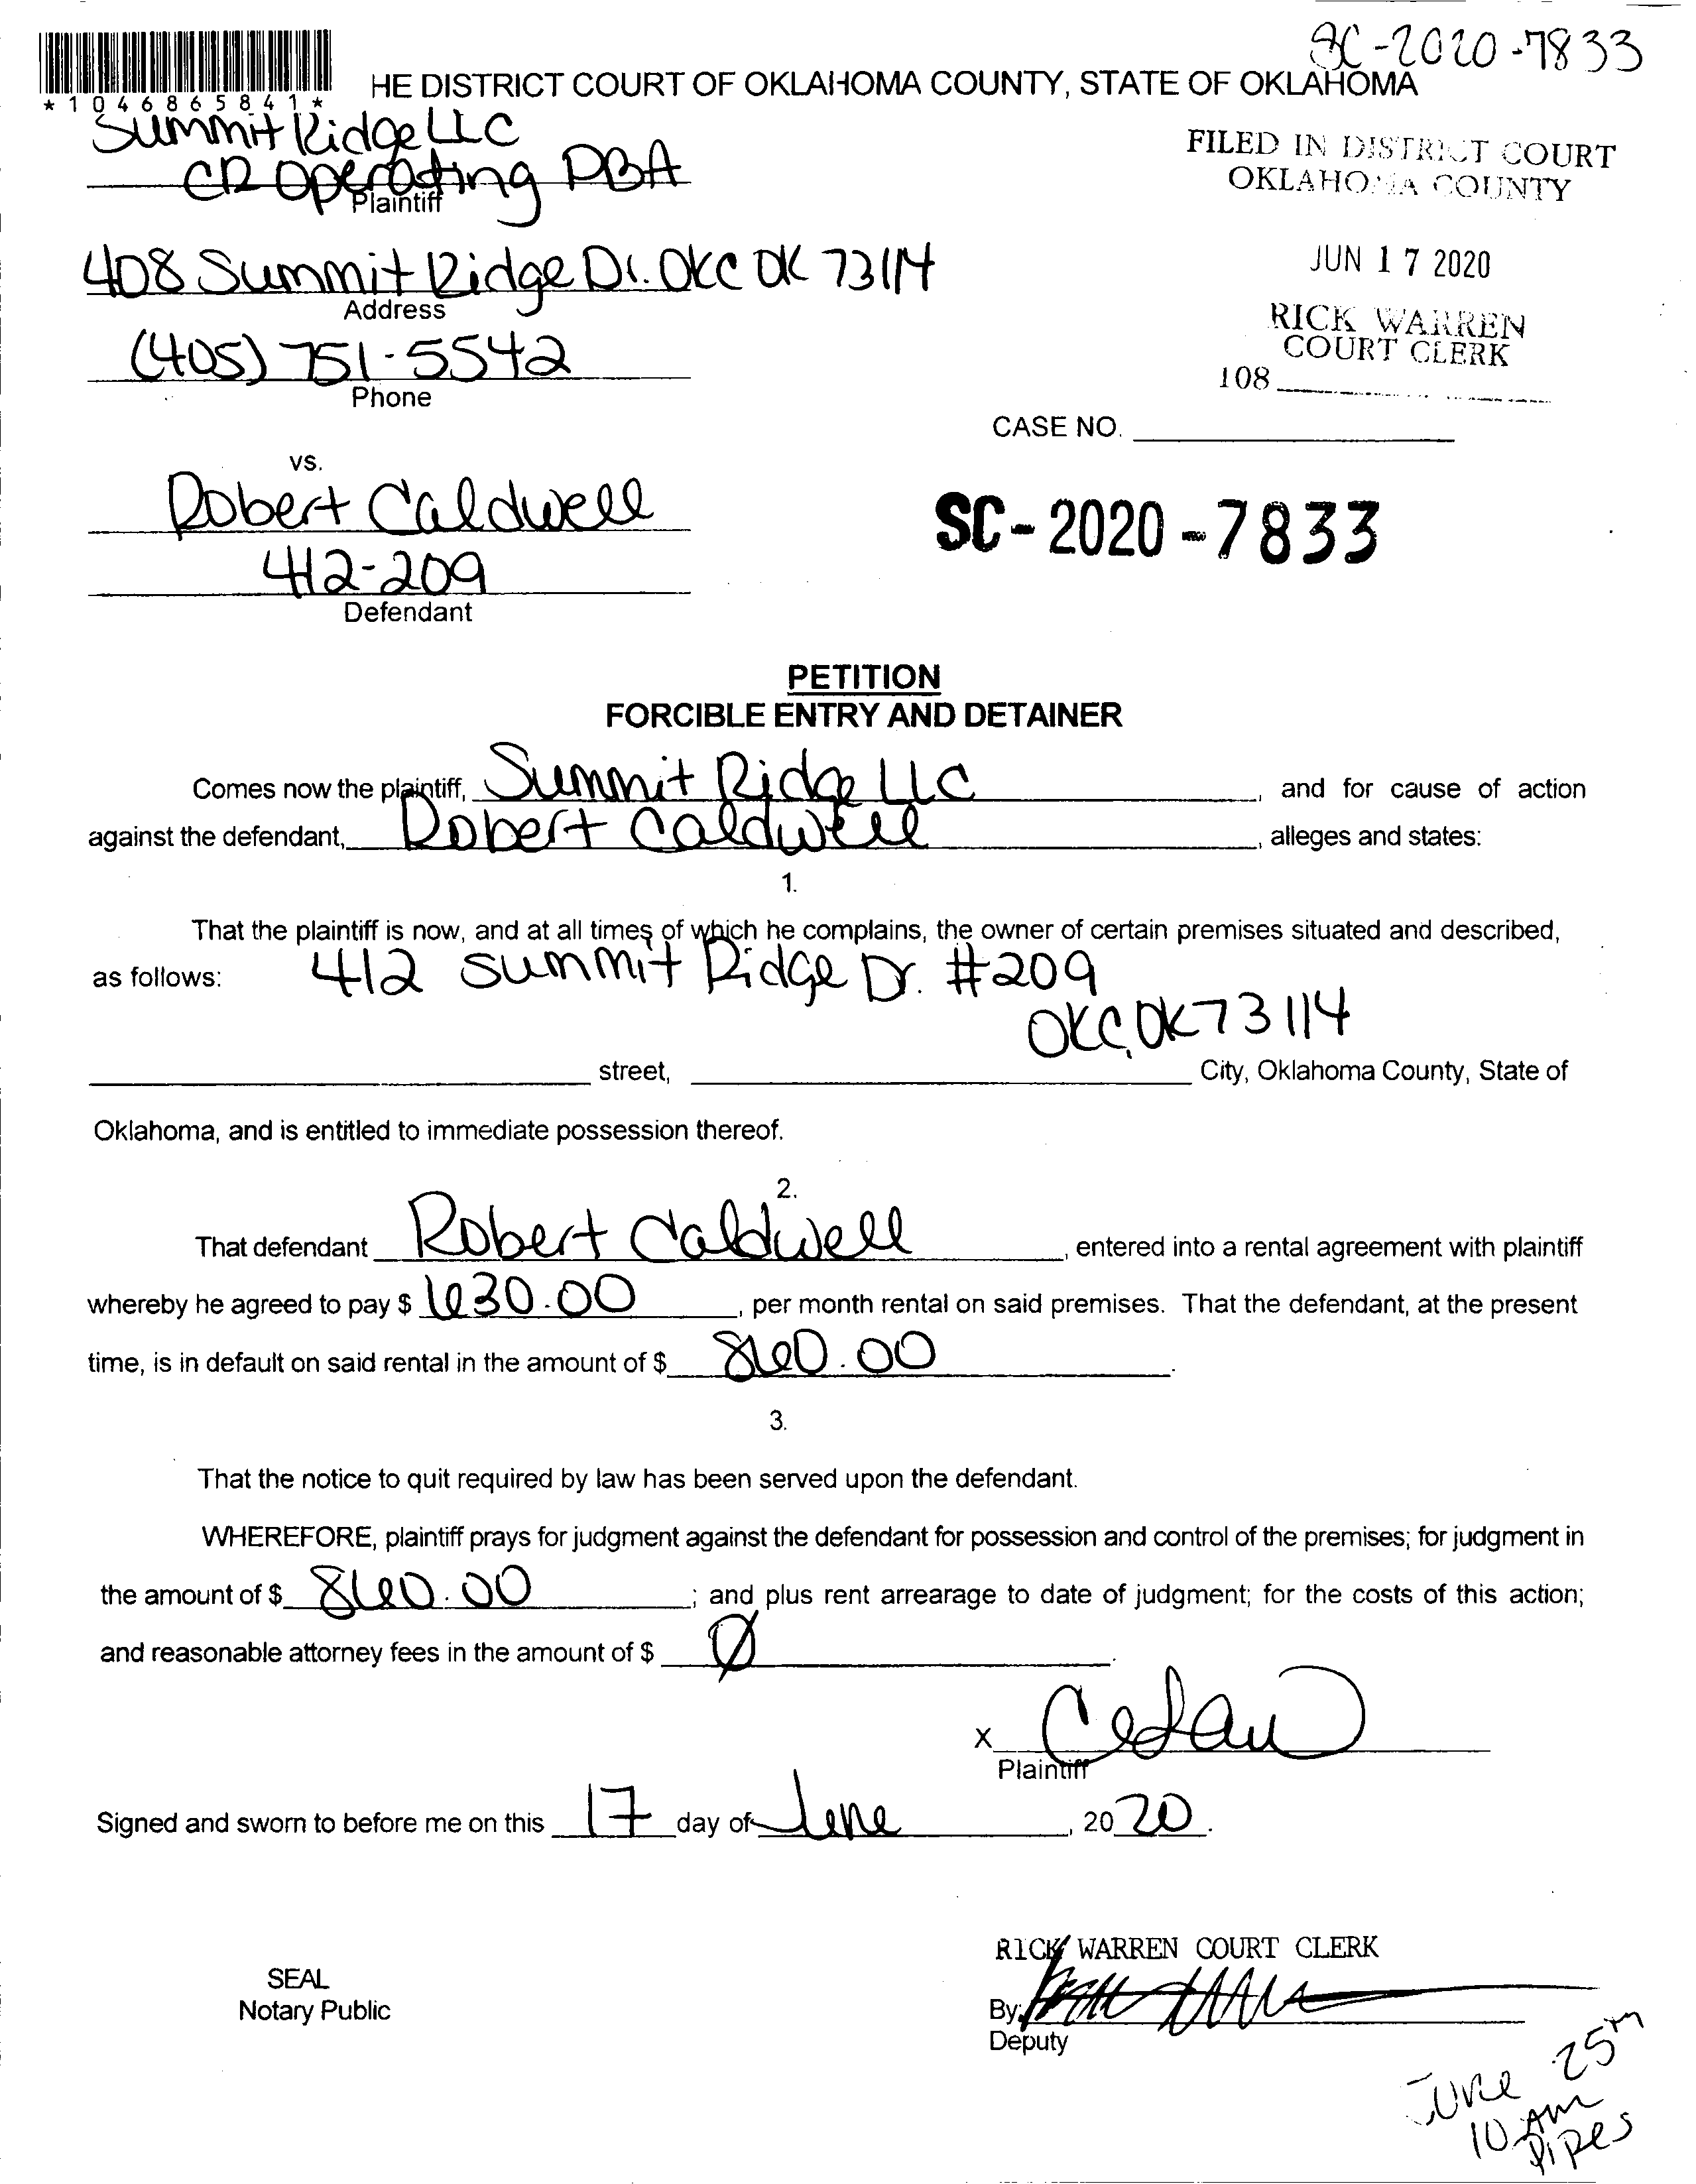 SC-2020-7833
*1046865841*
HE DISTRICT COURT OF OKLAHOMA COUNTY, STATE OF OKLAHOMA
Summit Ridge LLC
CR Operating DBA
Plaintiff
FILED IN DISTRICT COURT
OKLAHOMA COUNTY
408 Summit Ridge Dr. OKC OK 73114
Address
JUN 17 2020
(405) 751-5542
Phone
RICK WARREN
COURT CLERK
108
CASE NO.
vs.
Robert Caldwell
412-209
Defendant
SC-2020-7833
PETITION
FORCIBLE ENTRY AND DETAINER
Comes now the plaintiff, Summit Ridge LLC, and for cause of action
against the defendant, Robert Caldwell, alleges and states:
1.
That the plaintiff is now, and at all times of which he complains, the owner of certain premises situated and described,
as follows: 412 Summit Ridge Dr. #209
OKC, OK 73114
street, City, Oklahoma County, State of
Oklahoma, and is entitled to immediate possession thereof.
2.
That defendant Robert Caldwell, entered into a rental agreement with plaintiff
whereby he agreed to pay $ 630.00, per month rental on said premises. That the defendant, at the present
time, is in default on said rental in the amount of $ 860.00.
3.
That the notice to quit required by law has been served upon the defendant.
WHEREFORE, plaintiff prays for judgment against the defendant for possession and control of the premises; for judgment in
the amount of $ 860.00; and plus rent arrearage to date of judgment; for the costs of this action;
and reasonable attorney fees in the amount of $ Ø.
X
Plaintiff
Signed and sworn to before me on this 17 day of June, 2020.
RICK WARREN COURT CLERK
SEAL
Notary Public
By:
Deputy
June 25th
10 AM
Pipes